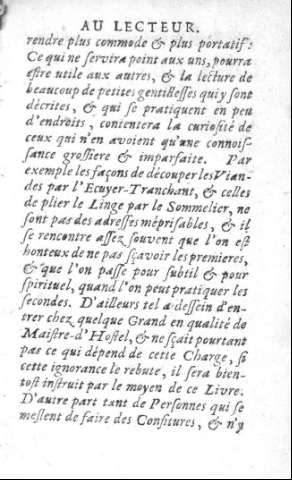 AU LECTEUR.
rendre plus commode & plus portatif:
Ce qui ne servira point aux uns, pourra
estre utile aux autres, & la lecture de
beaucoup de petites gentillesses qui y sont
décrites, & qui se pratiquent en peu
d'endroits, contentera la curiosité de
ceux qui n'en avoient qu'une connois-
sance grossiere & imparfaite. Par
exemple les façons de découper les Vian-
des par l'Ecuyer-Tranchant, & celles
de plier le Linge par le Sommelier, ne
sont pas des adresses méprisables, & il
se rencontre assez souvent que l'on est
honteux de ne pas sçavoir les premieres,
& que l'on passe pour subtil & pour
spirituel, quand l'on peut pratiquer les
secondes. D'ailleurs tel a dessein d'en-
trer chez quelque Grand en qualité de
Maistre-d'Hostel, & ne sçait pourtant
pas ce qui dépend de cette Charge, si
cette ignorance le rebute, il sera bien-
tost instruit par le moyen de ce Livre.
D'autre part tant de Personnes qui se
meslent de faire des Confitures, & n'y